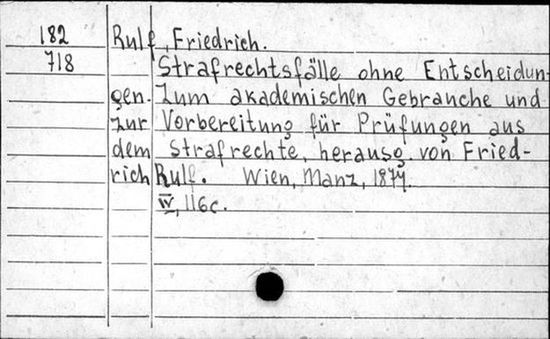 182 Rulf, Friedrich.
718 Strafrechtsfälle ohne Entscheidun-
gen. Zum akademischen Gebrauche und
zur Vorbereitung für Prüfungen aus
dem Strafrechte, herausg. von Fried-
rich Rulf. Wien, Manz, 1877.
IV, 116c.